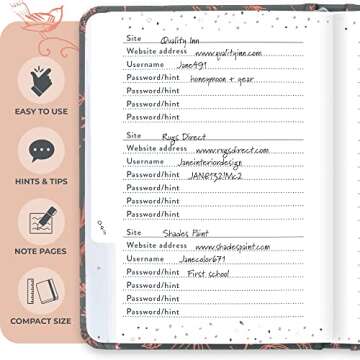 EASY TO USE
HINTS & TIPS
NOTE PAGES
COMPACT SIZE
Site Quality Inn
Website address www.qualityinn.com
Username Jane491
Password/hint honeymoon + year
Password/hint
Password/hint
Password/hint
Site Rugs Direct
Website address www.rugsdirect.com
Username Janeinteriordesign
Password/hint
Password/hint
Password/hint
Password/hint
Site Shades Paint
Website address www.shadespaint.com
Username Janecolor671
Password/hint First school
Password/hint
Password/hint
Password/hint